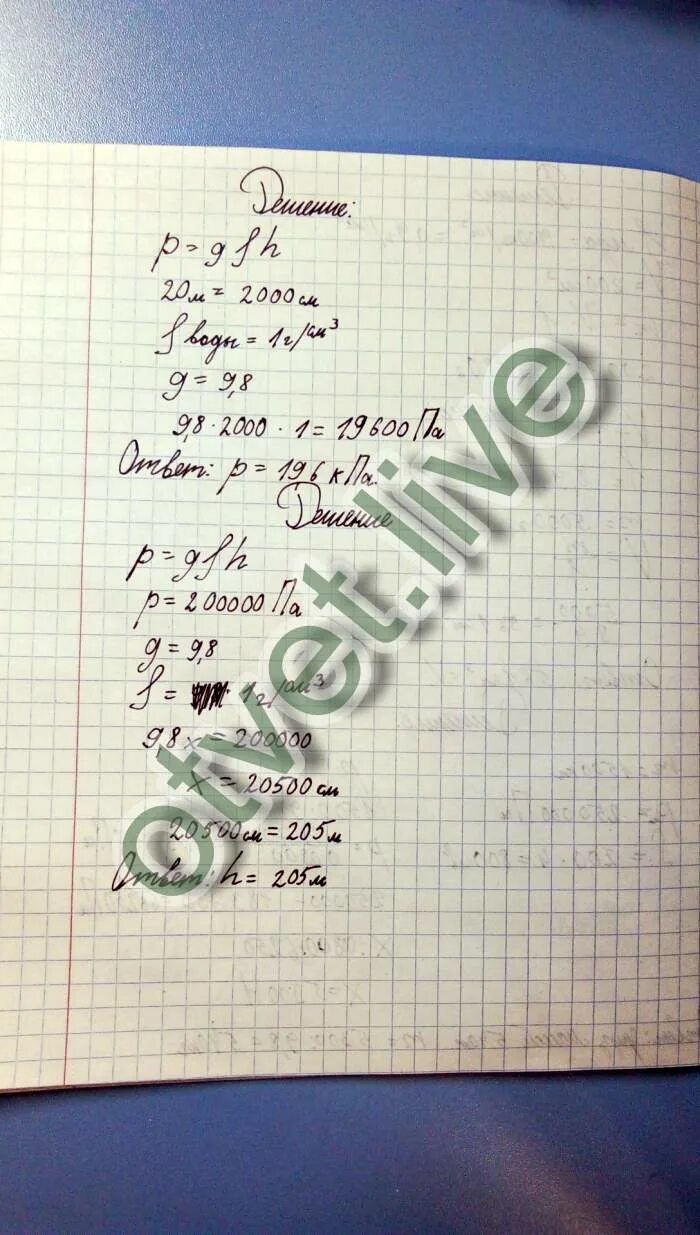 Решение:
p = gρh
20м = 2000см
ρ воды = 1г/см³
g = 9,8
9,8 · 2000 · 1 = 19600 Па
Ответ: p = 19,6 кПа.
Решение
p = gρh
p = 200000 Па
g = 9,8
ρ = 1г/см³
9,8x = 200000
x = 20500см
20500см = 205м
Ответ: h = 205м
otvet.live